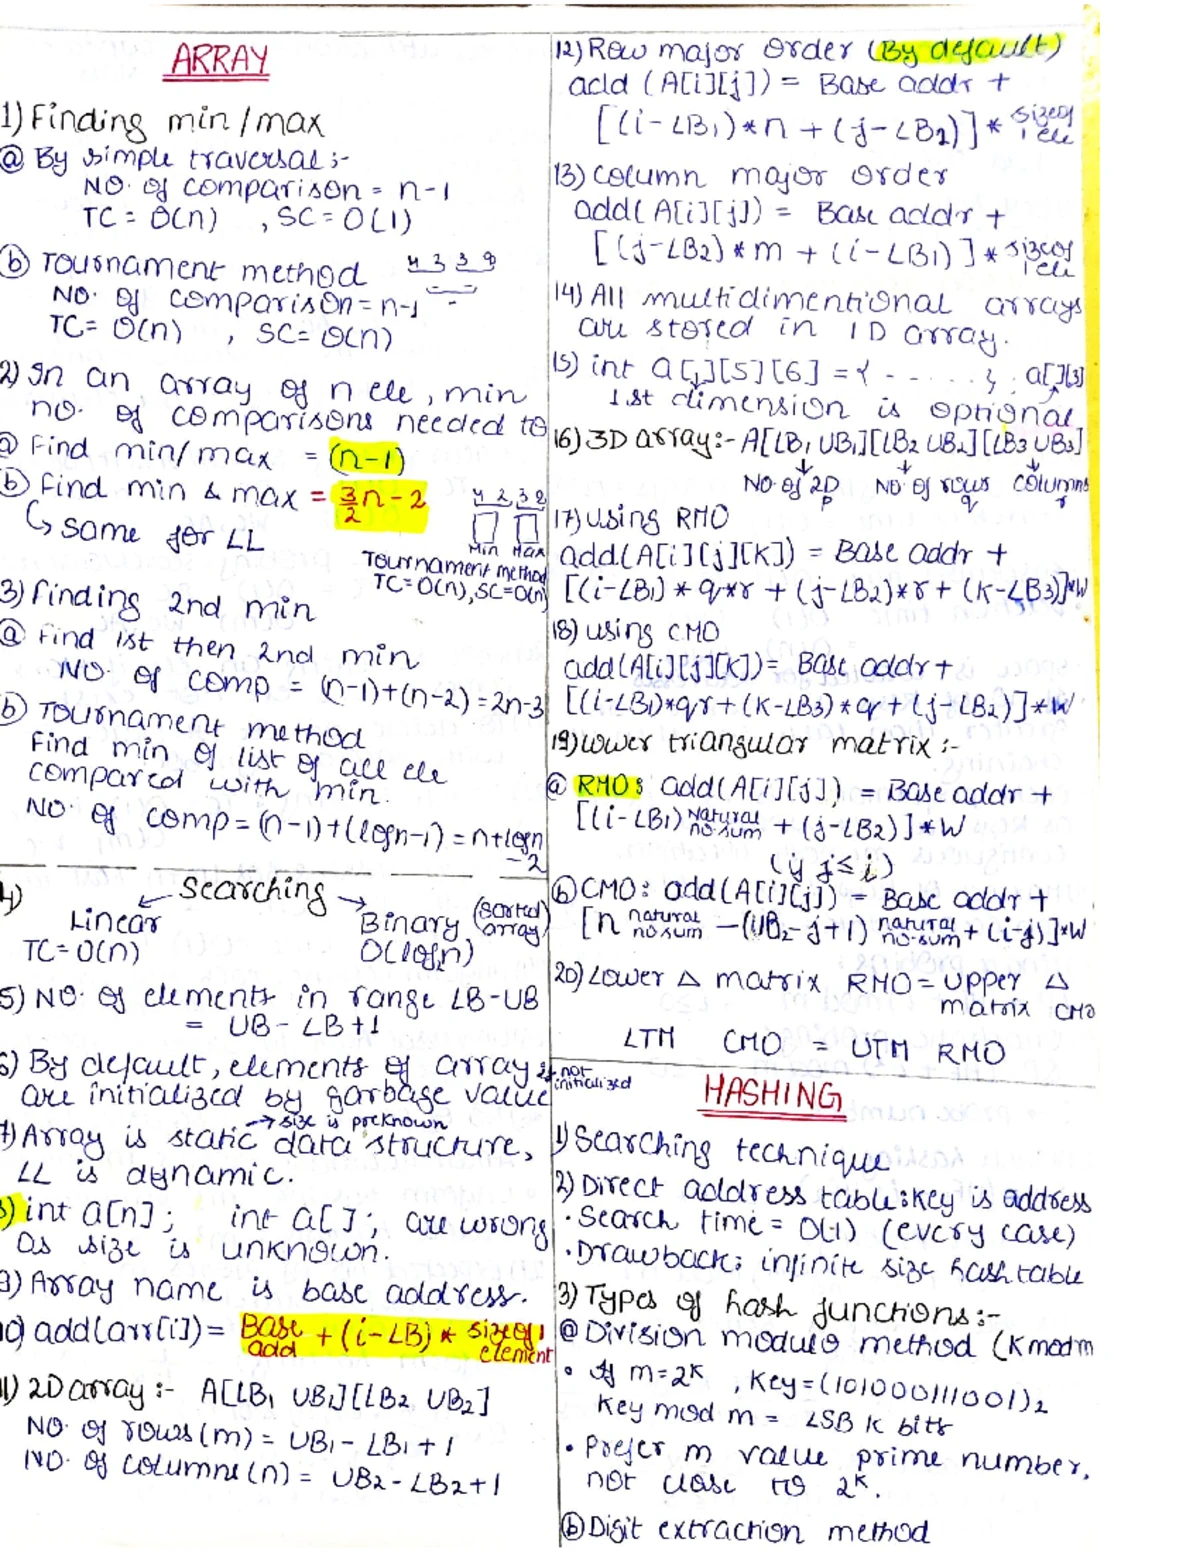 ARRAY
1) Finding min/max
ⓐ By simple traversal :-
NO. of comparison = n-1
TC = O(n) , SC = O(1)
ⓑ Tournament method
NO. of comparison = n-1
TC = O(n) , SC = O(n)
2) In an array of n ele, min
no. of comparisons needed to
ⓐ Find min/max = (n-1)
ⓑ Find min & max = 3/2 n - 2
↳ same for LL
Min Max
Tournament method
TC = O(n), SC = O(n)
3) Finding 2nd min
ⓐ Find 1st then 2nd min
NO. of comp = (n-1)+(n-2) = 2n-3
ⓑ Tournament method
Find min of list of all ele
compared with min.
NO. of comp = (n-1)+(logn-1) = n+logn
-2
4) Searching
Linear Binary (sorted array)
TC = O(n) O(log₂n)
5) NO. of elements in range LB-UB
= UB - LB + 1
6) By default, elements of array if not initialized
are initialized by garbage value
→ size is preknown
7) Array is static data structure,
LL is dynamic.
8) int a[n]; int a[]; are wrong
as size is unknown.
9) Array name is base address.
10) add(arr[i]) = Base add + (i-LB) * size of 1 element
11) 2D array :- A[LB₁ UB₁][LB₂ UB₂]
NO. of rows (m) = UB₁ - LB₁ + 1
NO. of columns (n) = UB₂ - LB₂ + 1
12) Row major order (By default)
add (A[i][j]) = Base addr +
[(i-LB₁)*n + (j-LB₂)] * size of 1 ele
13) Column major order
add(A[i][j]) = Base addr +
[(j-LB₂)*m + (i-LB₁)] * size of 1 ele
14) All multidimentional arrays
are stored in 1D array.
15) int a[][5][6] = { - ..... }; a[][3]
1st dimension is optional
16) 3D array :- A[LB₁ UB₁][LB₂ UB₂][LB₃ UB₃]
NO. of 2D p NO. of rows q columns r
17) using RMO
add(A[i][j][k]) = Base addr +
[(i-LB₁)*q*r + (j-LB₂)*r + (k-LB₃)]*W
18) using CMO
add(A[i][j][k]) = Base addr +
[(i-LB₁)*qr + (k-LB₃)*q + (j-LB₂)]*W
19) Lower triangular matrix :-
ⓐ RMO: add(A[i][j]) = Base addr +
[(i-LB₁) Natural no. sum + (j-LB₂)]*W
(if j≤i)
ⓑ CMO: add(A[i][j]) = Base addr +
[n natural no sum - (UB₂-j+1) natural no. sum + (i-j)]*W
20) Lower △ matrix RMO = Upper △
matrix CMO
LTM CMO = UTM RMO
HASHING
1) Searching technique
2) Direct address table: Key is address
• Search time = O(1) (every case)
• Drawback: infinite size hash table
3) Types of hash functions :-
ⓐ Division modulo method (K mod m
• If m = 2ᴷ , Key = (101000111001)₂
Key mod m = LSB K bits
• Prefer m value prime number,
not close to 2ᴷ.
ⓑ Digit extraction method